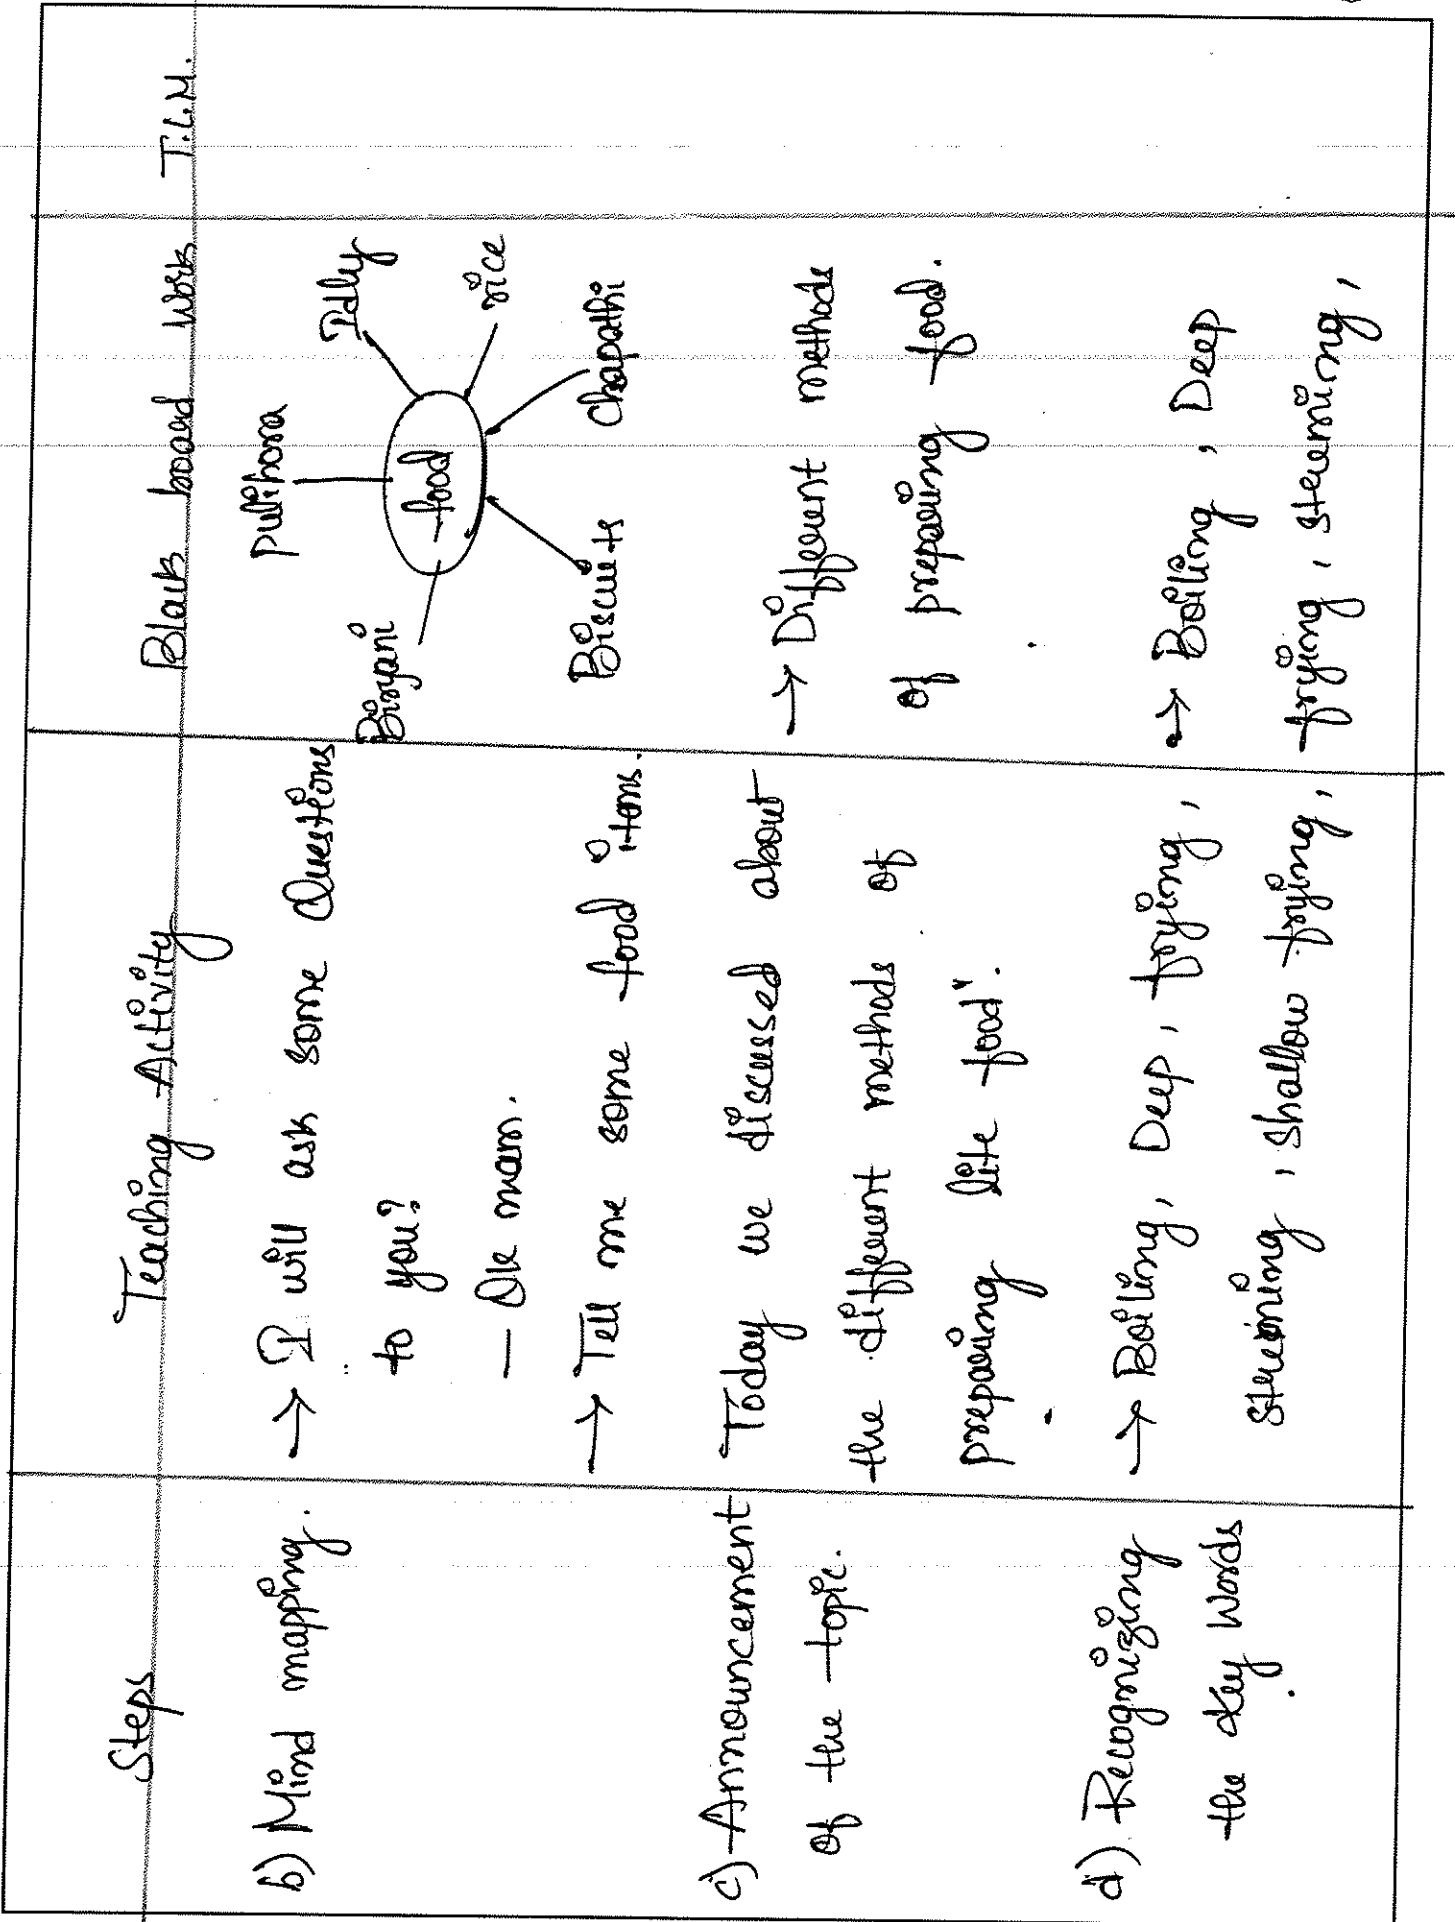 Steps
Teaching Activity
Black board work
T.L.M.
b) Mind mapping.
→ I will ask some Questions
to you?
- Ok mam.
→ Tell me some food items.
pulihora
Idly
rice
chapathi
Biscuits
Biryani
food
c) Announcement
of the topic.
Today we discussed about
the different methods of
preparing like food".
→ Different methods
of preparing food.
d) Recognizing
the key words
→ Boiling, Deep, frying,
steeming, shallow frying,
→ Boiling, Deep
frying, steeming,